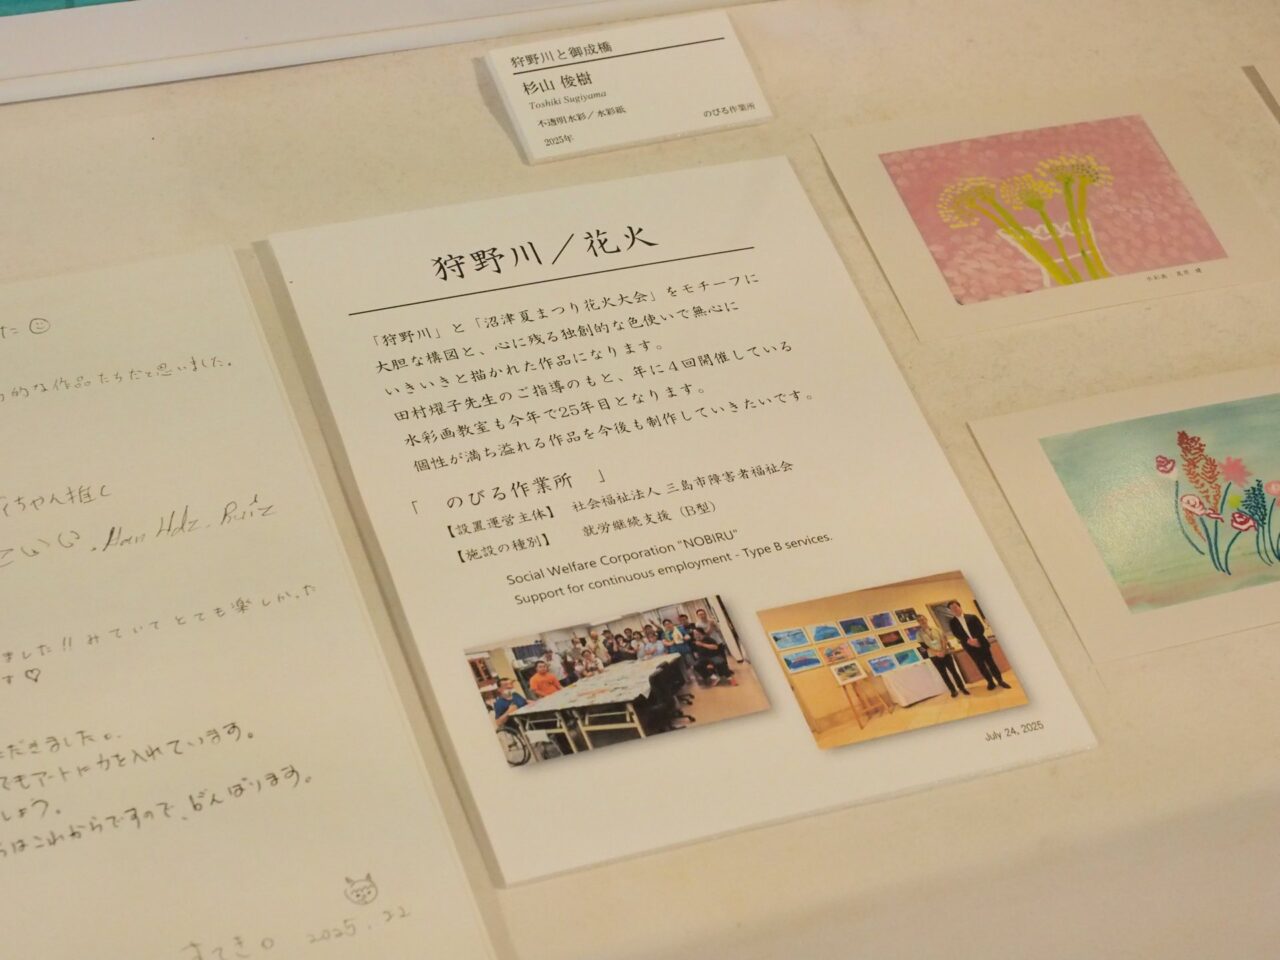 狩野川と御成橋
杉山 俊樹
Toshiki Sugiyama
不透明水彩／水彩紙
2025年
のびる作業所
狩野川／花火
「狩野川」と「沼津夏まつり花火大会」をモチーフに
大胆な構図と、心に残る独創的な色使いで無心に
いきいきと描かれた作品になります。
田村燿子先生のご指導のもと、年に４回開催している
水彩画教室も今年で25年目となります。
個性が満ち溢れる作品を今後も制作していきたいです。
「　のびる作業所　」
【設置運営主体】　社会福祉法人 三島市障害者福祉会
【施設の種別】　就労継続支援（B型）
Social Welfare Corporation "NOBIRU"
Support for continuous employment - Type B services.
July 24, 2025
た
的な作品たちだと思いました。
ちゃん推し
ました!! みていてとても楽しかった
す♡
ただきました。
でもアートに力を入れています。
しょう。
はこれからですので、がんばります。
すてき。 2025.